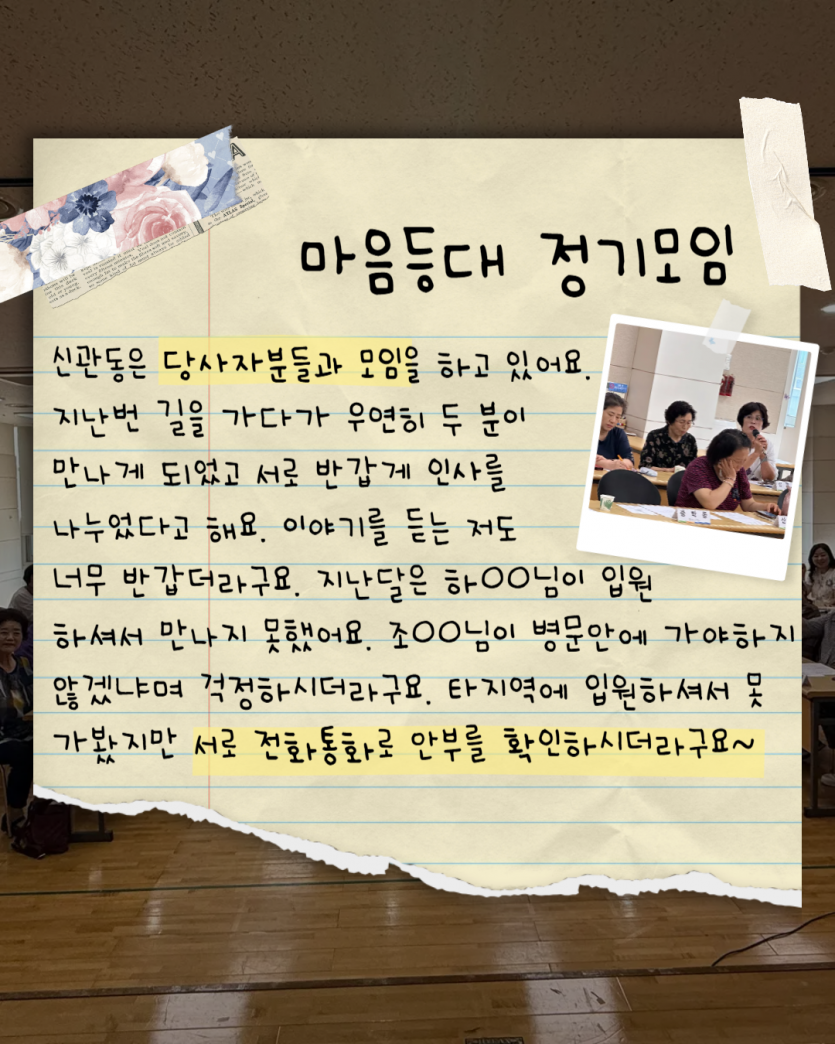 마음등대 정기모임
신관동은 당사자분들과 모임을 하고 있어요.
지난번 길을 가다가 우연히 두 분이
만나게 되었고 서로 반갑게 인사를
나누었다고 해요. 이야기를 듣는 저도
너무 반갑더라구요. 지난달은 하○○님이 입원
하셔서 만나지 못했어요. 조○○님이 병문안에 가야하지
않겠냐며 걱정하시더라구요. 타지역에 입원하셔서 못
가봤지만 서로 전화통화로 안부를 확인하시더라구요~